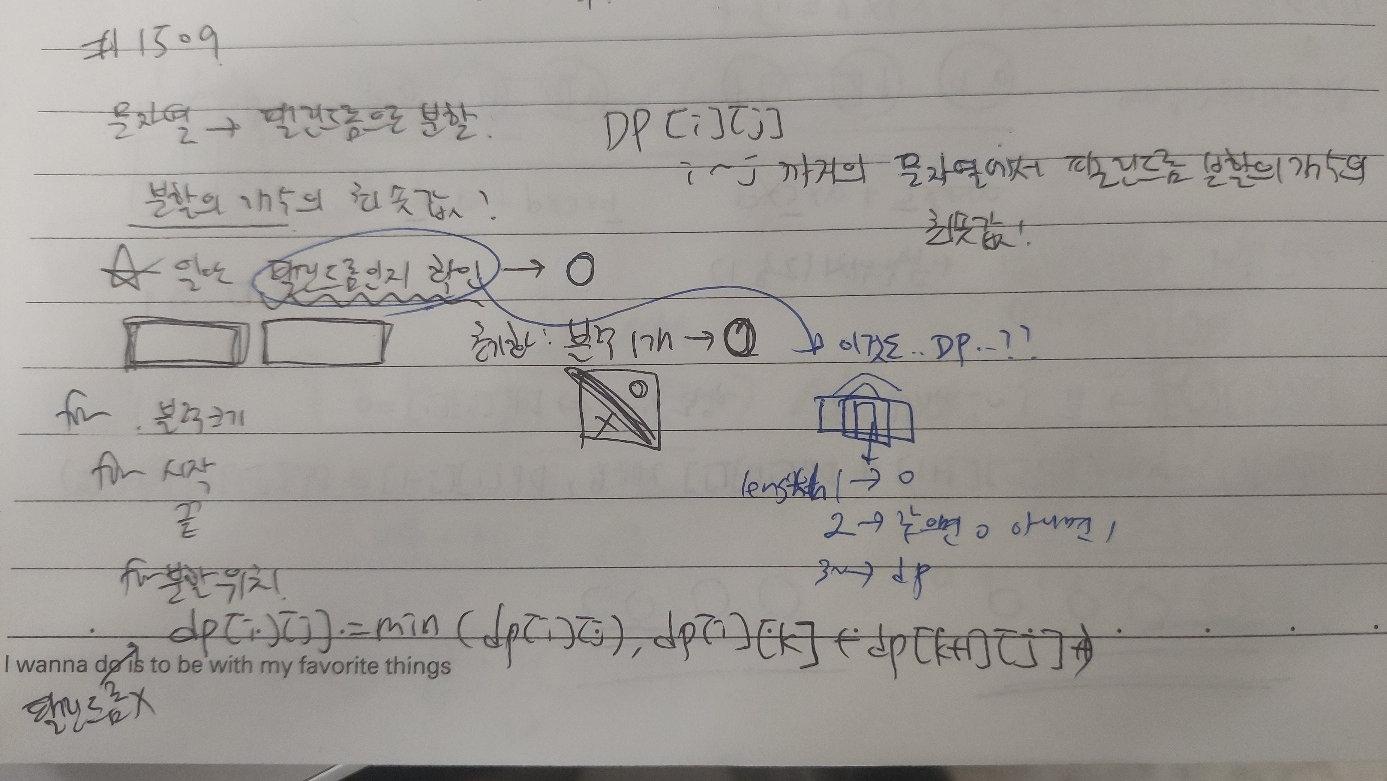 #1509
문자열 → 팰린드롬으로 분할.
DP[i][j]
i~j 까지의 문자열에서 팰린드롬 분할의 개수의
최솟값!
분할의 개수의 최솟값!
☆ 일단 팰린드롬인지 확인 → O
초기항: 분할 1개 →
이것도.. DP..??
O
X
for 분할크기
for 시작
끝
length 1 → 0
2 → 같으면 0 아니면 1
3~ → dp
for 분할위치
dp[i][j] = min (dp[i][j], dp[i][k] + dp[k+1][j])
I wanna do is to be with my favorite things
팰린드롬 X